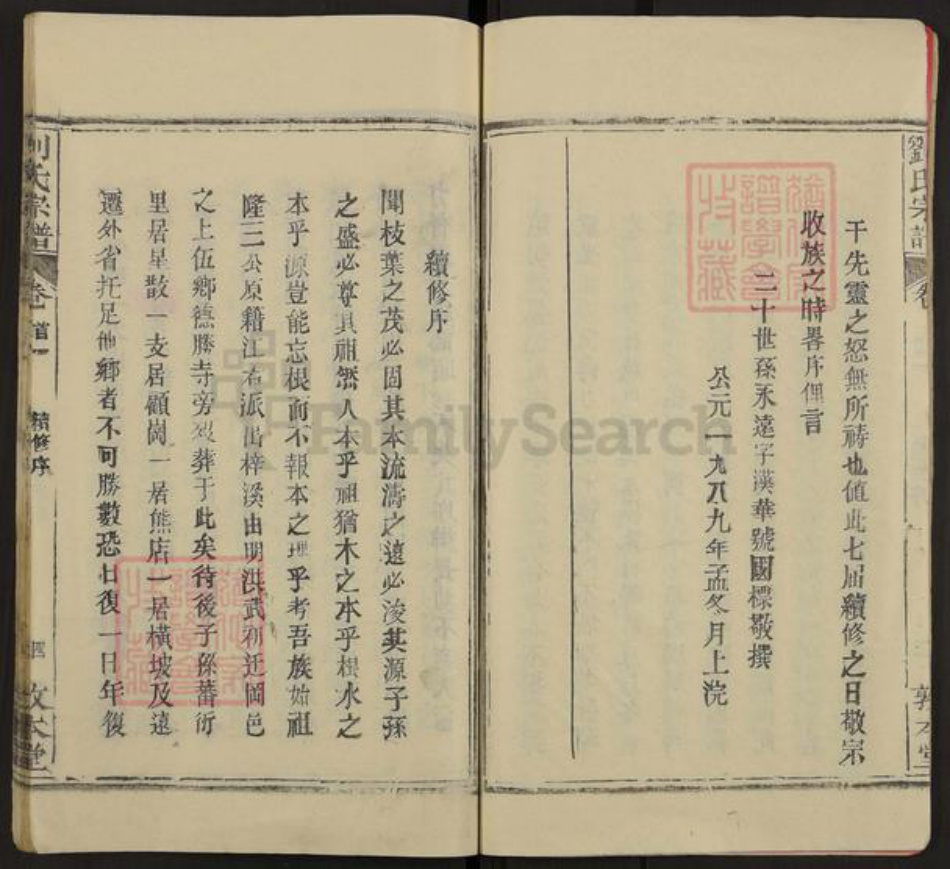 劉氏宗譜
卷
敦本堂
干先靈之怒無所禱也值此七屆續修之日敬宗
收族之時畧序俚言
二十世孫永遠字漢華號國標敬撰
公元一九八九年孟冬月上浣
續修序
聞枝葉之茂必固其本流濤之遠必浚其源子孫
之盛必尊其祖然人本乎祖猶木之本乎根水之
本乎源豈能忘根而不報本之理乎考吾族始祖
隆三公原籍江右派出梓溪由明洪武初迁岡邑
之上伍鄉德勝寺旁歿葬于此矣待後子孫蕃衍
里居星散一支居顧崗一居熊店一居橫坡及遠
遷外省托足他鄉者不可勝數恐日復一日年復
劉氏宗譜
卷首一
續修序
四
敦本堂
FamilySearch